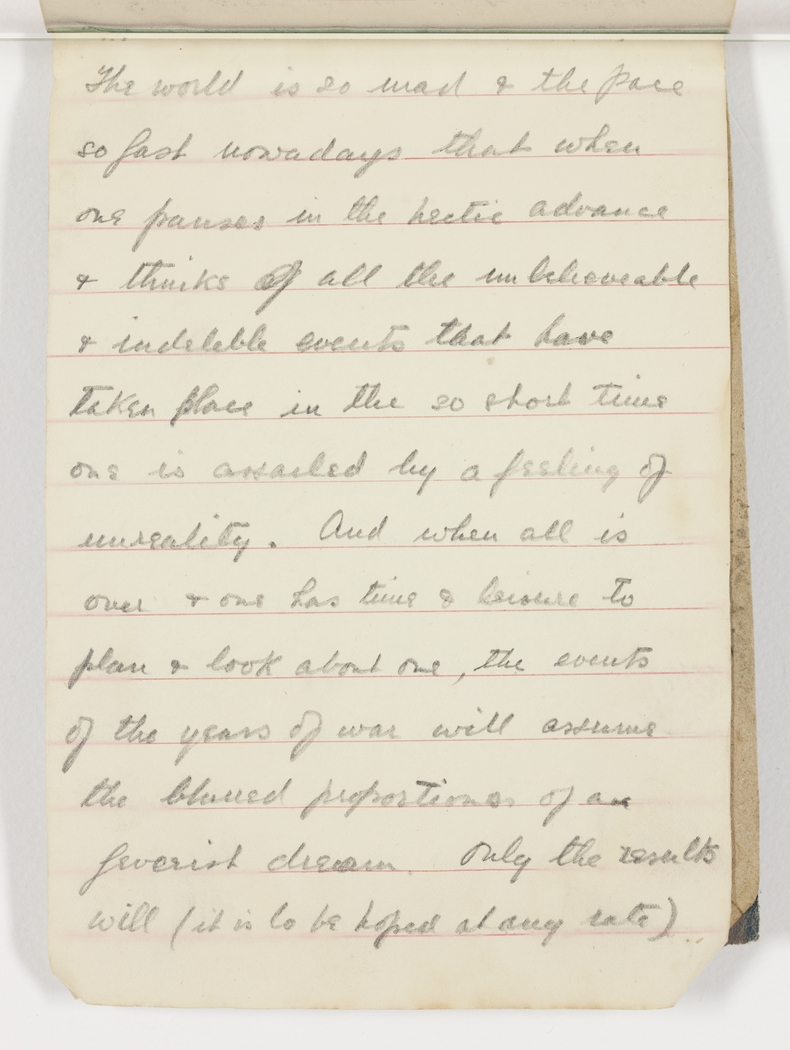 The world is so mad & the pace
so fast nowadays that when
one pauses in the hectic advance
& thinks of all the unbelieveable
& indeleble events that have
taken place in the so short time
one is assailed by a feeling of
unreality. And when all is
over & one has time & leisure to
plan & look about one, the events
of the years of war will assume
the blurred proportions of a
feverish dream. Only the results
will (it is to be hoped at any rate)